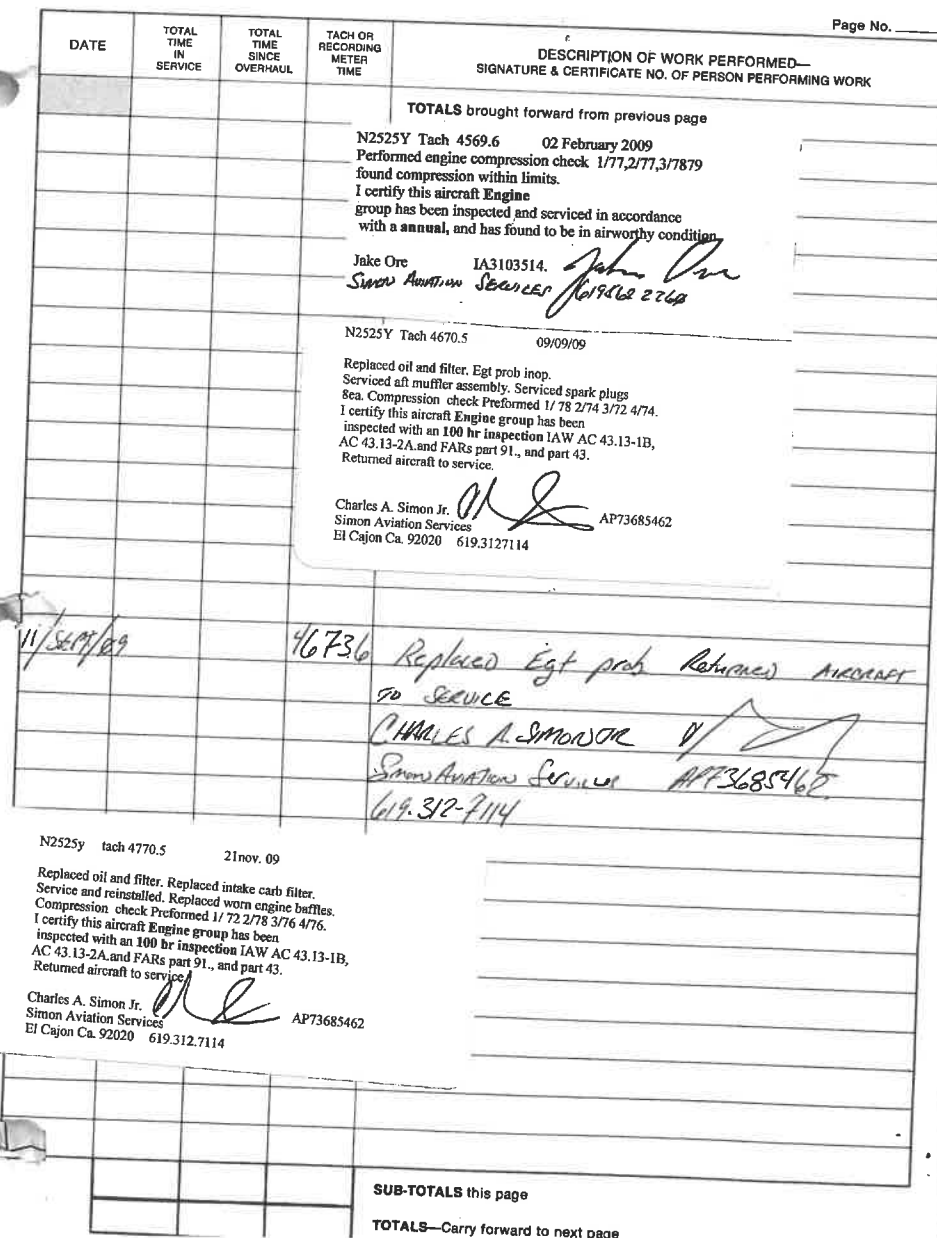 Page No.
DATE
TOTAL
TIME
IN
SERVICE
TOTAL
TIME
SINCE
OVERHAUL
TACH OR
RECORDING
METER
TIME
DESCRIPTION OF WORK PERFORMED—
SIGNATURE & CERTIFICATE NO. OF PERSON PERFORMING WORK
TOTALS brought forward from previous page
N2525Y Tach 4569.6 02 February 2009
Performed engine compression check 1/77,2/77,3/7879
found compression within limits.
I certify this aircraft Engine
group has been inspected and serviced in accordance
with a annual, and has found to be in airworthy condition
Jake Ore IA3103514.
SIMON AVIATION SERVICES
N2525Y Tach 4670.5 09/09/09
Replaced oil and filter. Egt prob inop.
Serviced aft muffler assembly. Serviced spark plugs
8ea. Compression check Preformed 1/ 78 2/74 3/72 4/74.
I certify this aircraft Engine group has been
inspected with an 100 hr inspection IAW AC 43.13-1B,
AC 43.13-2A.and FARs part 91., and part 43.
Returned aircraft to service.
Charles A. Simon Jr.
Simon Aviation Services AP73685462
El Cajon Ca. 92020 619.3127114
11/SEPT/09 4673.6 Replaced Egt prob Returned AIRCRAFT
TO SERVICE
CHARLES A. SIMON JR
Simon Aviation Services AP73685462
619.312-7114
N2525y tach 4770.5 21nov. 09
Replaced oil and filter. Replaced intake carb filter.
Service and reinstalled. Replaced worn engine baffles.
Compression check Preformed 1/ 72 2/78 3/76 4/76.
I certify this aircraft Engine group has been
inspected with an 100 hr inspection IAW AC 43.13-1B,
AC 43.13-2A.and FARs part 91., and part 43.
Returned aircraft to service
Charles A. Simon Jr.
Simon Aviation Services AP73685462
El Cajon Ca. 92020 619.312.7114
SUB-TOTALS this page
TOTALS—Carry forward to next page